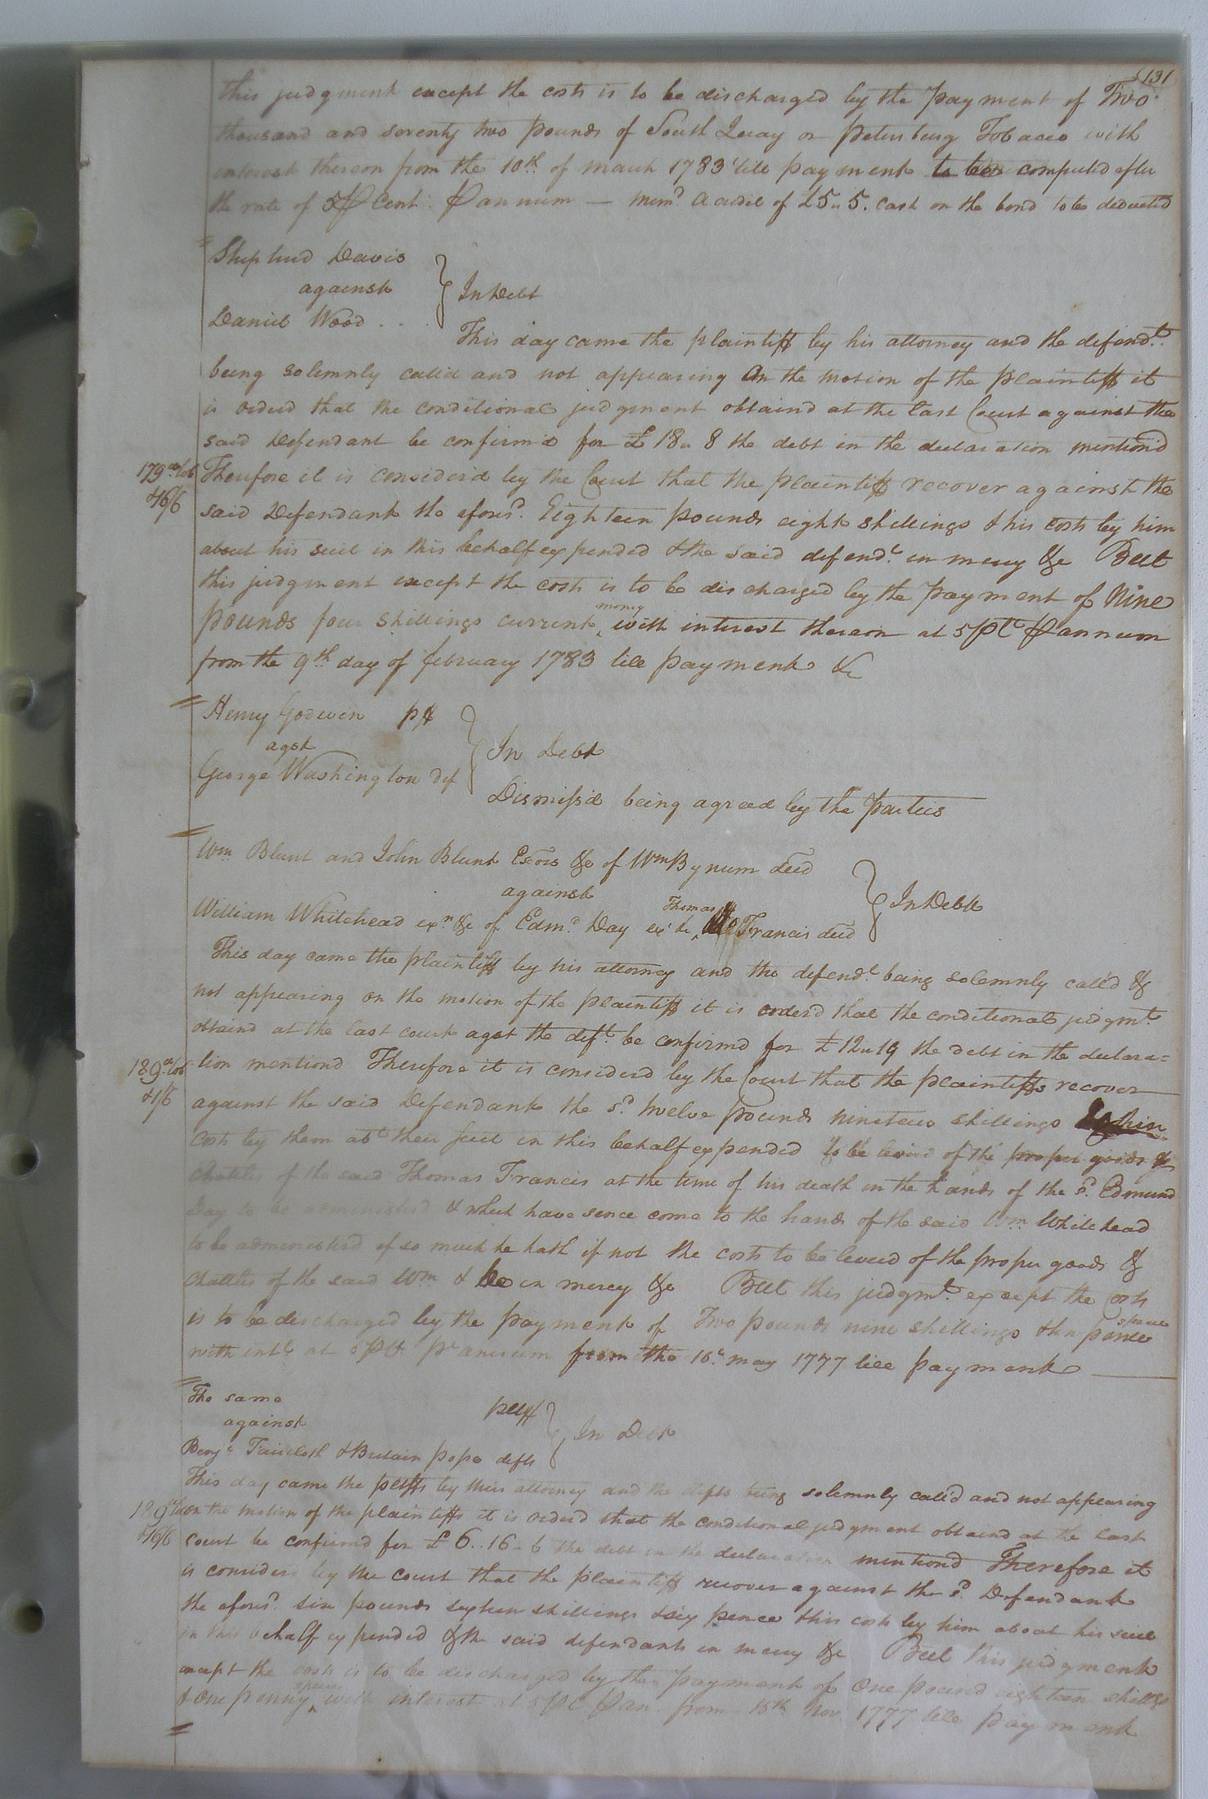 131
this judgment except the costs is to be discharged by the payment of Two
thousand and seventy two pounds of South Quay or petersburg Tobacco with
interest thereon from the 10th. of march 1783 till payment to be computed after
the rate of 5 P Cent. P annum — Memd. a credit of £5 " 5. cash on the bond to be deducted
Shephard Davis
against
Daniel Wood . .
} In Debt
This day came the plaintiff by his attorney and the defendt.
being solemnly calld and not appearing On the motion of the plaintiff it
is orderd that the conditional judgment obtaind at the last Court against the
said Defendant be confirm'd for £ 18 " 8 the debt in the declaration mention'd
Therefore it is considerd by the Court that the plaintiff recover against the
said Defendant the aforesd. Eighteen pounds eight shillings & his costs by him
about his suit in this behalf expended & the said defendt. in mercy &c But
this judgment except the costs is to be discharged by the payment of Nine
pounds four shillings current money with interest thereon at 5 P Ct P annum
from the 9th day of february 1783 till payment &c
179
Henry Godwin plf
agst
George Washington def
} In Debt
Dismiss'd being agreed by the parties
Wm. Blunt and John Blunt Exors &c of Wm Bynum decd
against
William Whitehead exr. &c of Edmd. Day exr. Thomas Francis decd
} In Debt
This day came the plaintiff by his attorney and the defendt. being solemnly call'd &
not appearing on the motion of the plaintiff it is orderd that the conditional judgmt.
obtaind at the last court agst the deft. be confirmd for £ 12 " 19 the debt in the declara=
tion mentiond Therefore it is considerd by the Court that the plaintiffs recover
against the said Defendant the sd. twelve pounds nineteen shillings & their
costs by them abt. their suit in this behalf expended to be levied of the proper goods &
chattles of the said Thomas Francis at the time of his death in the hands of the sd. Edmund
Day to be administerd & which have since come to the hands of the said Wm. Whitehead
to be administerd if so much he hath if not the costs to be levied of the proper goods &
chattles of the said Wm & be in mercy &c But this judgmt. except the Costs
is to be discharged by the payment of Two pounds nine shillings & pence specie
with intt. at 5 P Ct Pr annum from the 16t. may 1777 till payment
189
The same pltff
against
Benjn. Faircloth & Britain pope defts
} In Debt
This day came the pltffs by their attorney and the defts being solemnly call'd and not appearing
on the motion of the plaintiffs it is orderd that the conditional judgment obtaind at the last
court be confirmd for £ 6 . . 16 " 6 the debt in the declaration mentiond Therefore it
is considerd by the court that the plaintiff recover against the sd. Defendant
the aforesd. six pounds sixteen shillings & six pence & his costs by him about his suit
in this behalf expended & the said defendants in mercy &c But this judgment
except the costs is to be discharged by the payment of One pound eighteen shillgs
& One penny specie with interest at 5 P C P an. from 15th Nov. 1777 till payment